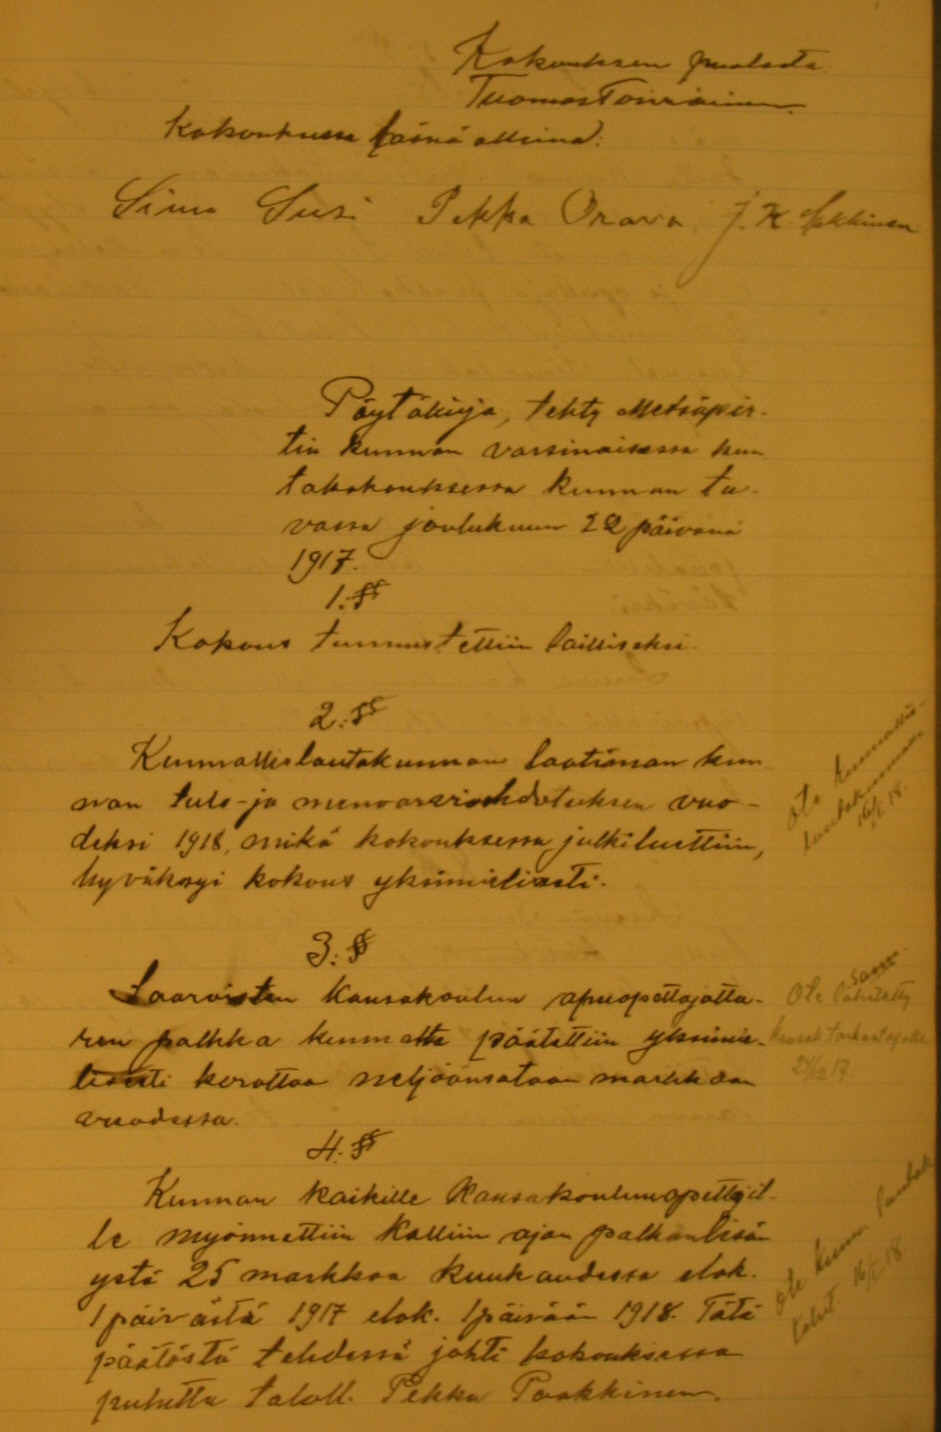 Kokouksen puolesta
Tuomas Toiviainen
Kokouksessa läsnä olleina:
Simo Susi Pekka Orava J. K.
Pöytäkirja, tehty Metsäpir-
tin kunnan varsinaisessa kun
takokouksessa kunnan tu-
vassa joulukuun 22 päivänä
1917.
1:§§
Kokous tunnustettiin lailliseksi.
2:§§
Kunnallislautakunnan laatiman kun
nan tulo- ja menoarvioehdotuksen vuo-
deksi 1918, mikä kokouksessa julkiluettiin,
hyväksyi kokous yksimielisesti.
ote kunnallis-
lautakunnalle
16/1 18.
3:§§
Saaroisten kansakoulun apuopettajatta-
ren palkka kunnalta päätettiin yksimie-
lisesti korottaa neljäänsataan markkaan
vuodessa.
Ote lähetetty
kansak tarkastajalle
21/12 17
4:§§
Kunnan kaikille kansakoulunopettajil-
le myönnettiin kalliin ajan palkanlisä-
ystä 25 markkaa kuukaudessa elok.
1 päivästä 1917 elok. 1 päivään 1918. Tätä
päätöstä tehdessä johti kokouksessa
puhetta taloll. Pekka Paakkinen.
ote kunn lautak
16/1 18.